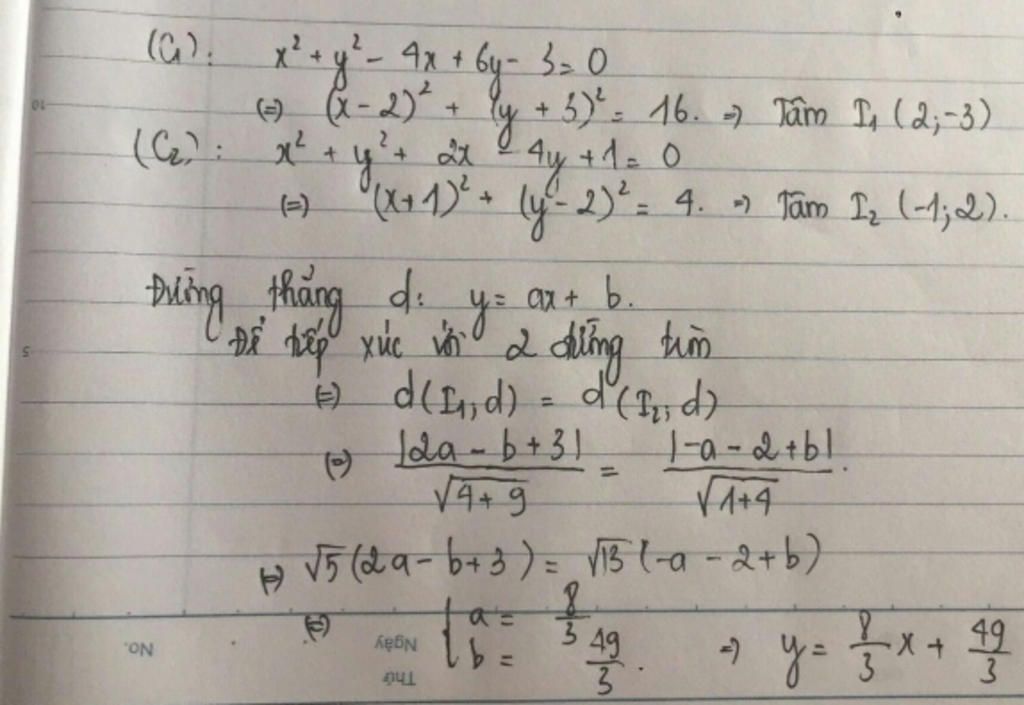 (C1): x² + y² - 4x + 6y - 3 = 0
(=) (x - 2)² + (y + 3)² = 16. => Tâm I₁ (2;-3)
(C₂): x² + y² + 2x - 4y + 1 = 0
(=) (x+1)² + (y - 2)² = 4. => Tâm I₂ (-1;2).
Đường thẳng d: y = ax + b.
Để tiếp xúc với 2 đường tròn
(=) d(I₁;d) = d(I₂;d)
(=) |2a - b + 3| / √4+9 = |-a - 2 + b| / √1+4.
(=) √5 (2a - b + 3) = √13 (-a - 2 + b)
(=) { a = 8/3
b = 49/3. => y = 8/3 x + 49/3
No.
Ngày
Thứ
10
5